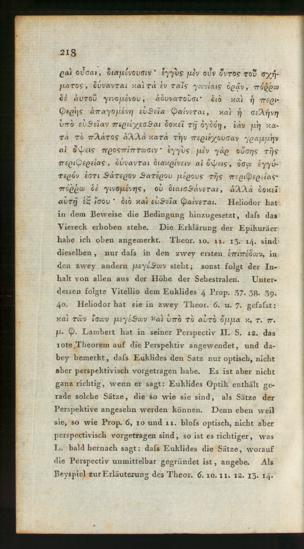 218
ραὶ οὖσαι, διαμένουσιν· ἐγγὺς μὲν οὖν ὄντος τοῦ σχή-
ματος, δύνανται καὶ τὰ ἐν ταῖς γωνίαις ὁρᾷν, πόῤῥω
δὲ αὐτοῦ γινομένου, ἀδυνατοῦσι· διὸ καὶ ἡ περι-
φερὴς ἀπαγομένη εὐθεῖα φαίνεται, καὶ ἡ σελήνη
ὑπὸ εὐθειᾶν περιέχεσθαι δοκεῖ τῇ ὀγδόῃ, ἐὰν μὴ κα-
τὰ τὸ πλάτος ἀλλὰ κατὰ τὴν περιέχουσαν γραμμὴν
αἱ ὄψεις προσπίπτωσιν· ἐγγὺς μὲν γὰρ οὔσης τῆς
περιφερείας, δύνανται διακρίνειν αἱ ὄψεις, ὅσῳ ἐγγύ-
τερόν ἐστι θάτερον θατέρου μέρους τῆς περιφερείας·
πόῤῥω δὲ γινομένης, οὐ διαισθάνεται, ἀλλὰ δοκεῖ
αὐτῇ ἐξ ἴσου· διὸ καὶ εὐθεῖα φαίνεται. Heliodor hat
in dem Beweise die Bedingung hinzugesetzt, daſs das
Viereck erhoben stehe. Die Erklärung der Epikuräer
habe ich oben angemerkt. Theor. 10. 11. 13. 14. sind
dieselben, nur daſs in den zwey ersten ἐπιπέδων, in
den zwey andern μεγέθων steht; sonst folgt der In-
halt von allen aus der Höhe der Sehestralen. Unter-
dessen folgte Vitellio dem Euklides 4 Prop. 37. 38. 39.
40. Heliodor hat sie in zwey Theor. 6. u. 7. gefaſst:
καὶ τῶν ἴσων μεγεθῶν καὶ ὑπὸ τὸ αὐτὸ ὄμμα κ. τ. π.
μ. φ. Lambert hat in seiner Perspectiv II. S. 12. das
10te Theorem auf die Perspektiv angewendet, und da-
bey bemerkt, daſs Euklides den Satz nur optisch, nicht
aber perspektivisch vorgetragen habe. Es ist aber nicht
ganz richtig, wenn er sagt: Euklides Optik enthält ge-
rade solche Sätze, die so wie sie sind, als Sätze der
Perspektive angesehn werden können. Denn eben weil
sie, so wie Prop. 6, 10 und 11. bloſs optisch, nicht aber
perspectivisch vorgetragen sind, so ist es richtiger, was
L. bald hernach sagt: daſs Euklides die Sätze, worauf
die Perspectiv unmittelbar gegründet ist, angebe. Als
Beyspiel zur Erläuterung des Theor. 6. 10. 11. 12. 13. 14.